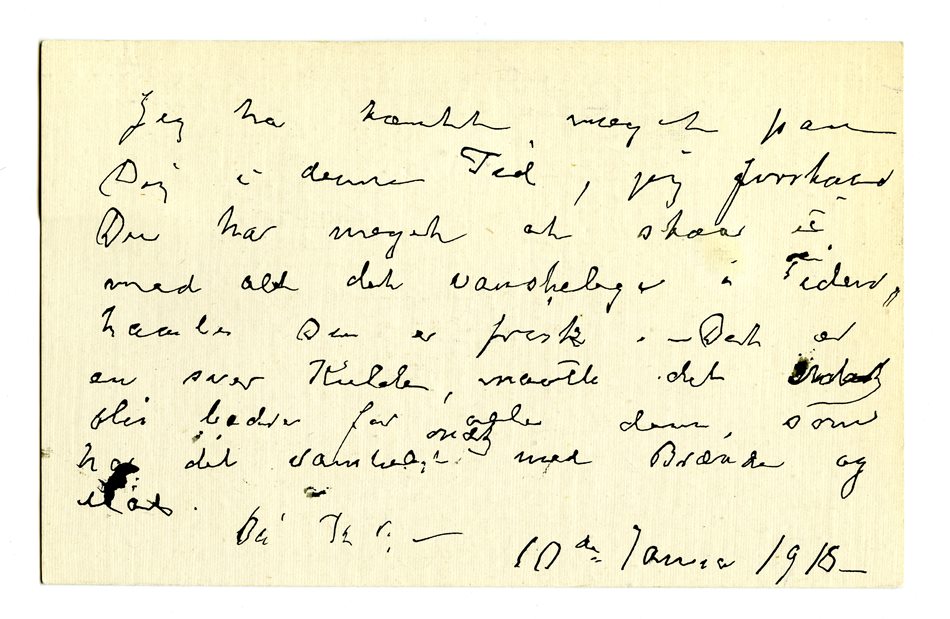 Jeg ha tænkt meget paa
Dig i denne Tid, jeg forstaar
Du har meget at staa i
med alt det vanskelige i Tiden,
haaber Du er frisk. – Det er
en svær Kulde, maatte det
bli bedre for alle dem, som
har det vanskeligt med Brænde og
10de Janua 1918